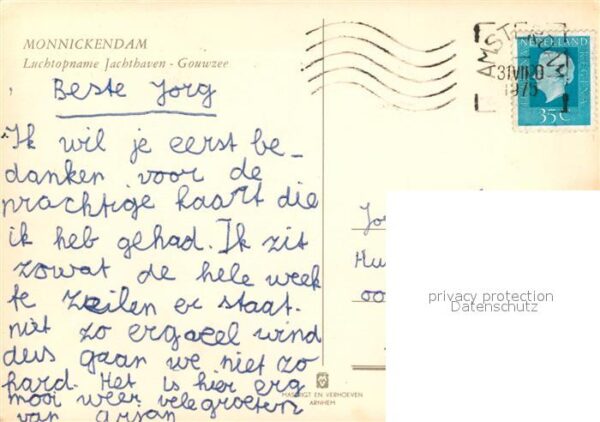 MONNICKENDAM
Luchtopname Jachthaven - Gouwzee
Beste Jorg
Ik wil je eerst be-
danken voor de
prachtige kaart die
ik heb gehad. Ik zit
zowat de hele week
te zeilen er staat
niet zo erg veel wind
dus gaan we niet zo
hard. Het is hier erg
mooi weer vele groeten
van Arjan
AMSTERDAM
1975
NEDERLAND
35c
Jo
Hu
oo
privacy protection
Datenschutz
MASTRIGT EN VERHOEVEN
ARNHEM